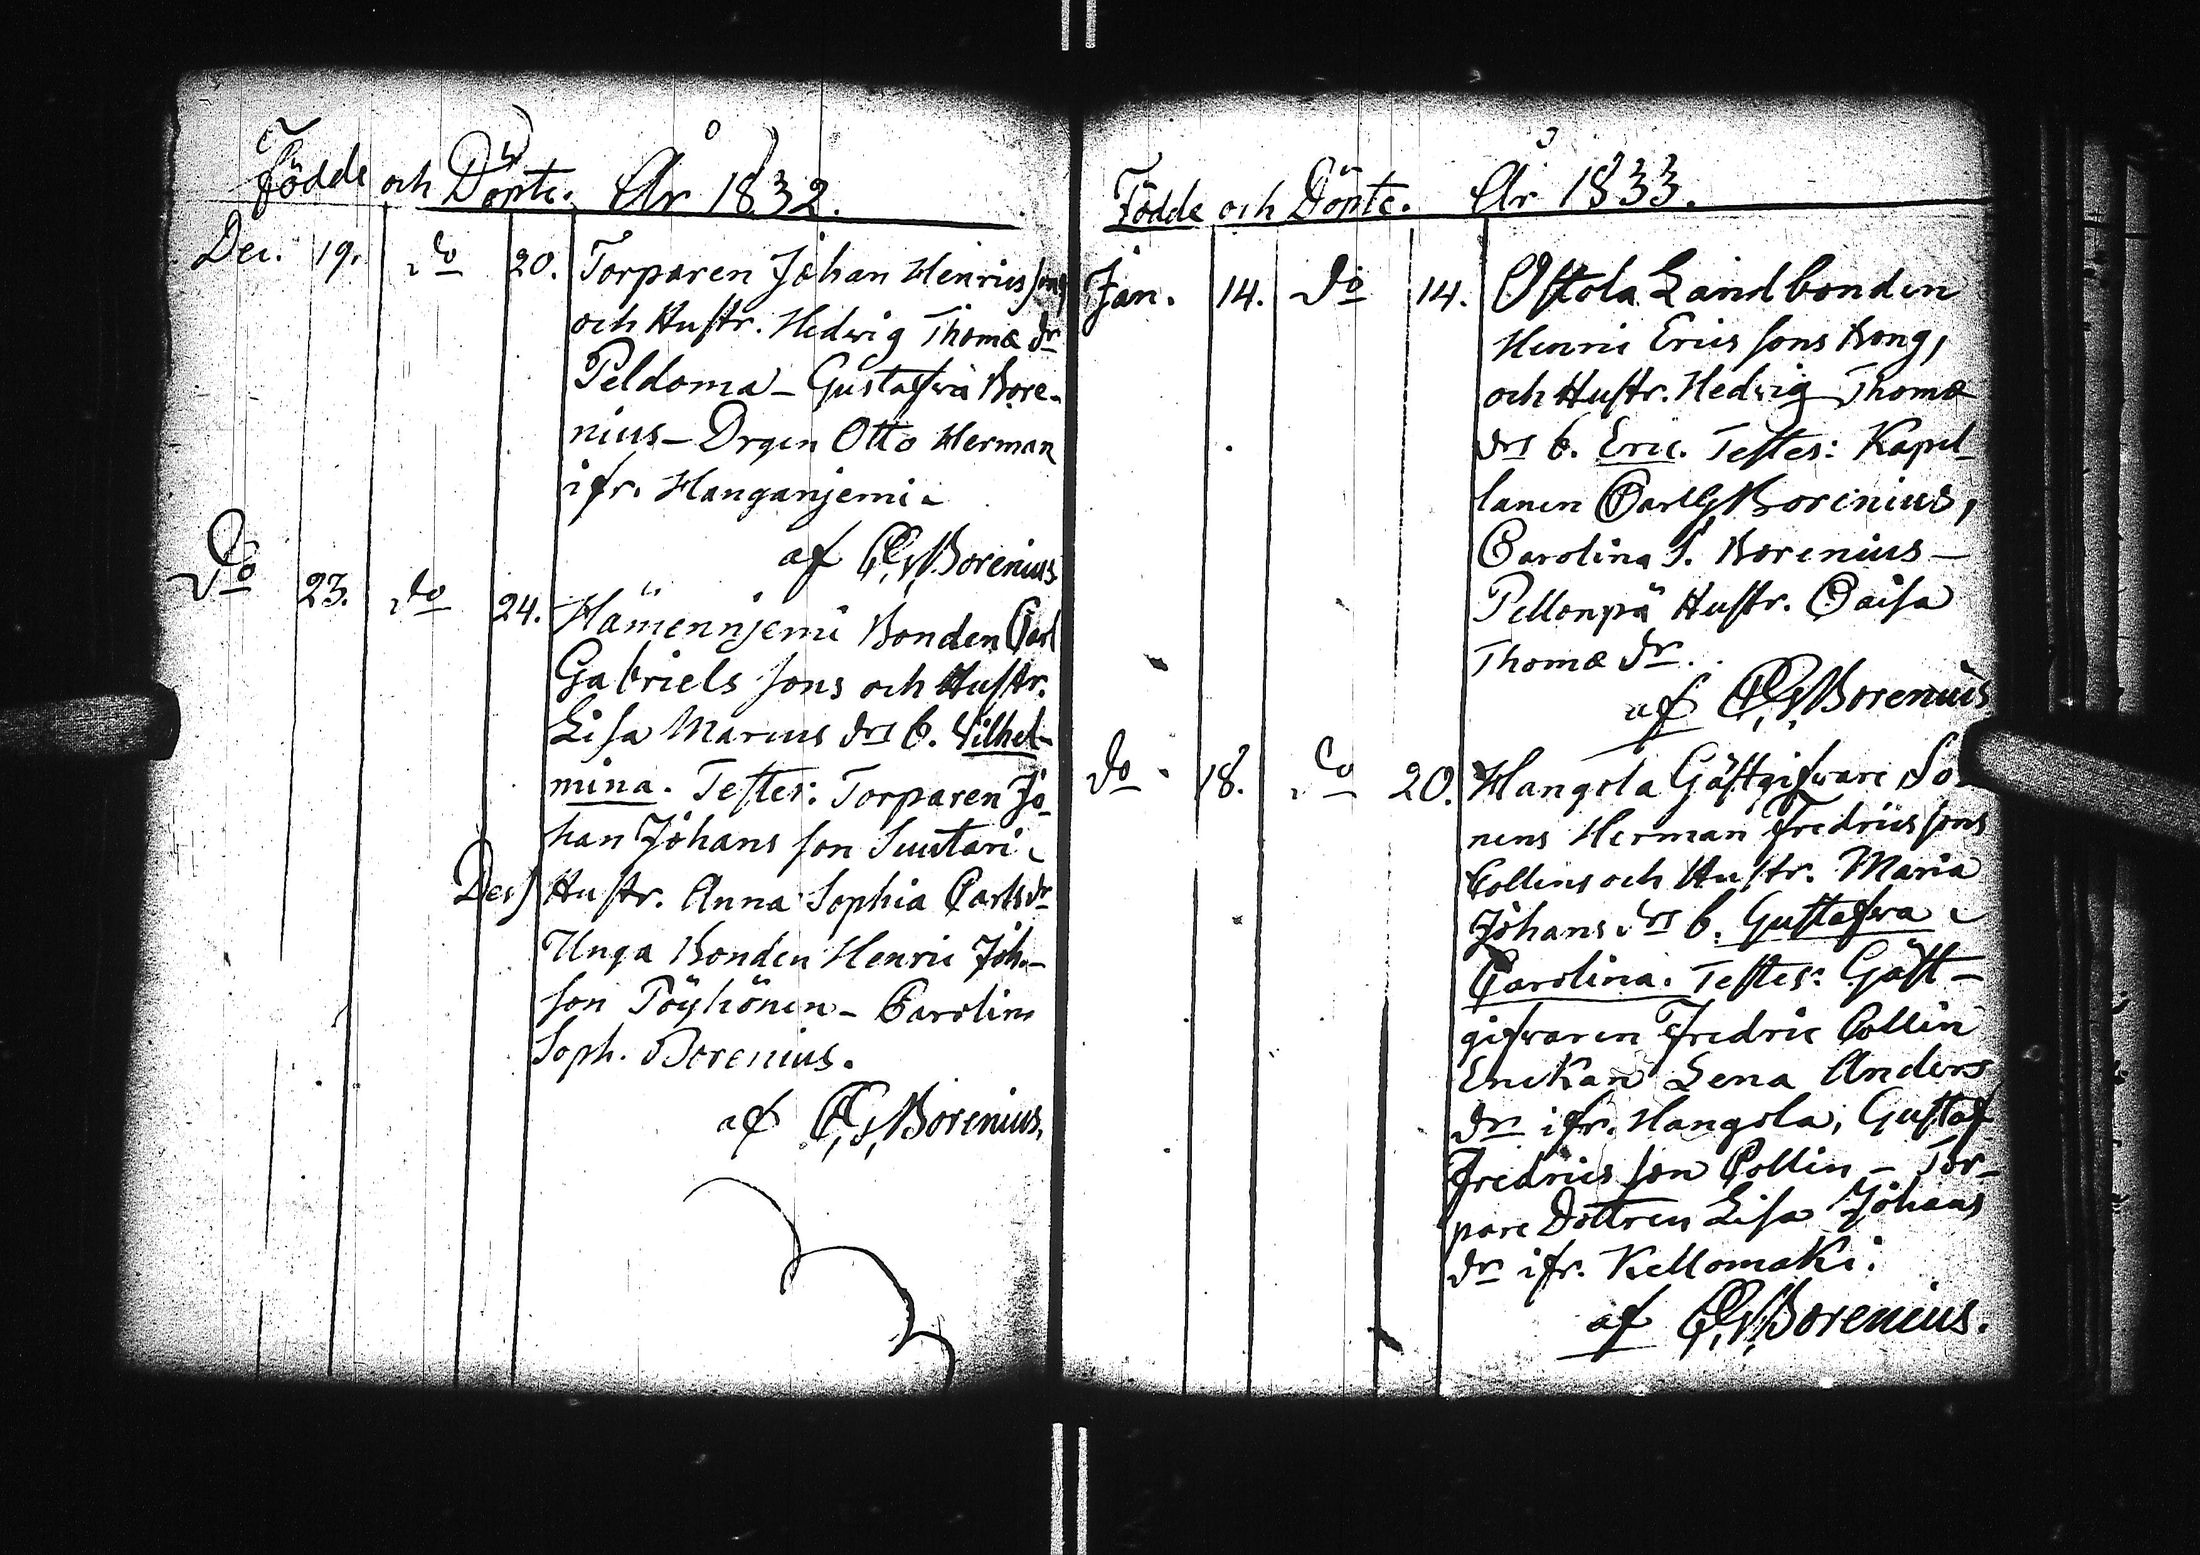 Födde och Döpte. År 1832.
Dec. 19. do 20. Torparen Johan Henricssons
och Hustr. Hedvig Thomæ dr
Peldoma – Gustafva Bore-
nius – Drgen Otto Herman
ifr. Hanganjemi.
af C. G. Borenius
Do 23. do 24. Hämennjemi Bonden Carl
Gabriels sons och Hustr.
Lisa Marcus drs b. Vilhel-
mina. Testes: Torparen Jo-
han Johans son Suutari
Des) Hustr. Anna Sophia Carls dr
Unga Bonden Henric Joh.-
son Pöyhönen – Carolin
Soph. Borenius.
af C. G. Borenius.
Födde och Döpte. År 1833.
Jan. 14. do 14. Ostola Landbonden
Henric Erics sons Bong,
och Hustr. Hedvig Thomæ
drs b. Eric. Testes: Kapel-
lanen Carl G Borenius,
Carolina S. Borenius –
Pellonpä Hustr. Caisa
Thomæ dr.
af C. G. Borenius
do 18. do 20. Hangola Gästgifvare So-
nens Herman Fredricssons
Collins och Hustr. Maria
Johans drs b. Gustafva
Carolina. Testes: Gäst-
gifvaren Fredric Collin
Enckan Lena Anders
dr ifr. Hangola, Gustaf
Fredrics son Collin – Tor-
pare Dottren Lisa Johans
dr ifr. Kellomaki.
af C. G. Borenius.